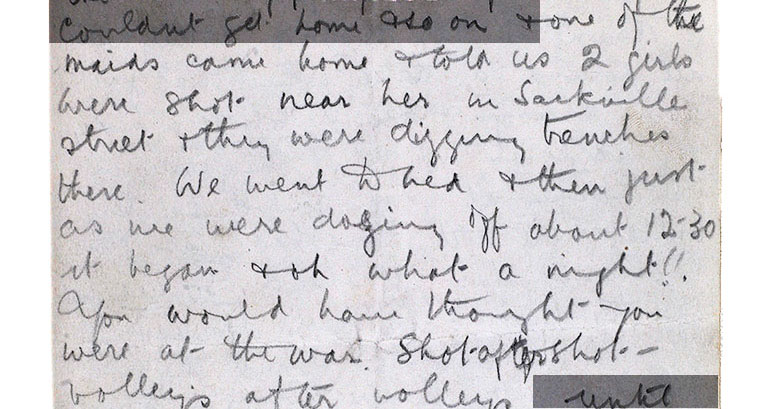 couldnt get home & so on & one of the
maids came home & told us 2 girls
were shot near her in Sackville
street & they were digging trenches
there. We went to bed & then just
as we were dozing off about 12-30
it began & oh what a night!!
You would have thought you
were at the war. Shot after shot -
volleys after volleys until